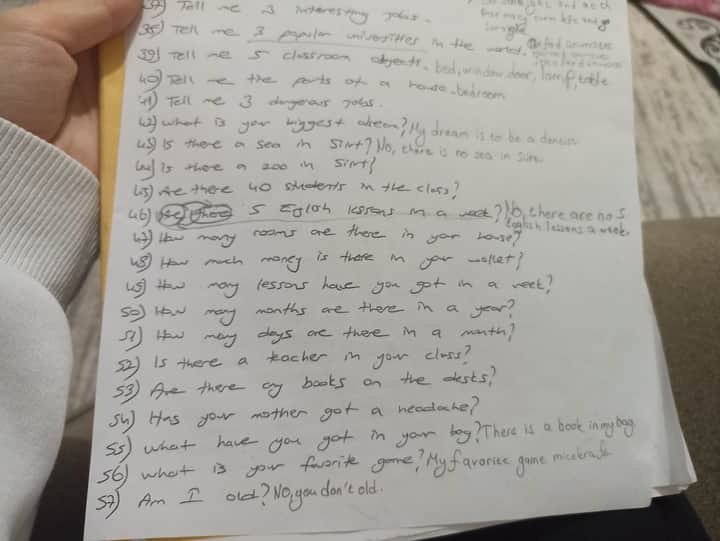 37) Tell me 3 interesting jobs.
38) Tell me 3 popular universities in the world.
39) Tell me 5 classroom objects. bed, window, door, lamp, table
40) Tell me the parts of a house. bedroom
41) Tell me 3 dangerous jobs.
42) What is your biggest dream? My dream is to be a
43) Is there a sea in Siirt? No, there is no sea in Siirt.
44) Is there a zoo in Siirt?
45) Are there 40 students in the class?
46) Are there 5 English lessons in a week? No, there are no 5
English lessons a week.
47) How many rooms are there in your house?
48) How much money is there in your wallet?
49) How many lessons have you got in a week?
50) How many months are there in a year?
51) How many days are there in a month?
52) Is there a teacher in your class?
53) Are there any books on the desks?
54) Has your mother got a headache?
55) What have you got in your bag? There is a book in my bag
56) What is your favorite game? My favorite game
57) Am I old? No, you don't old.